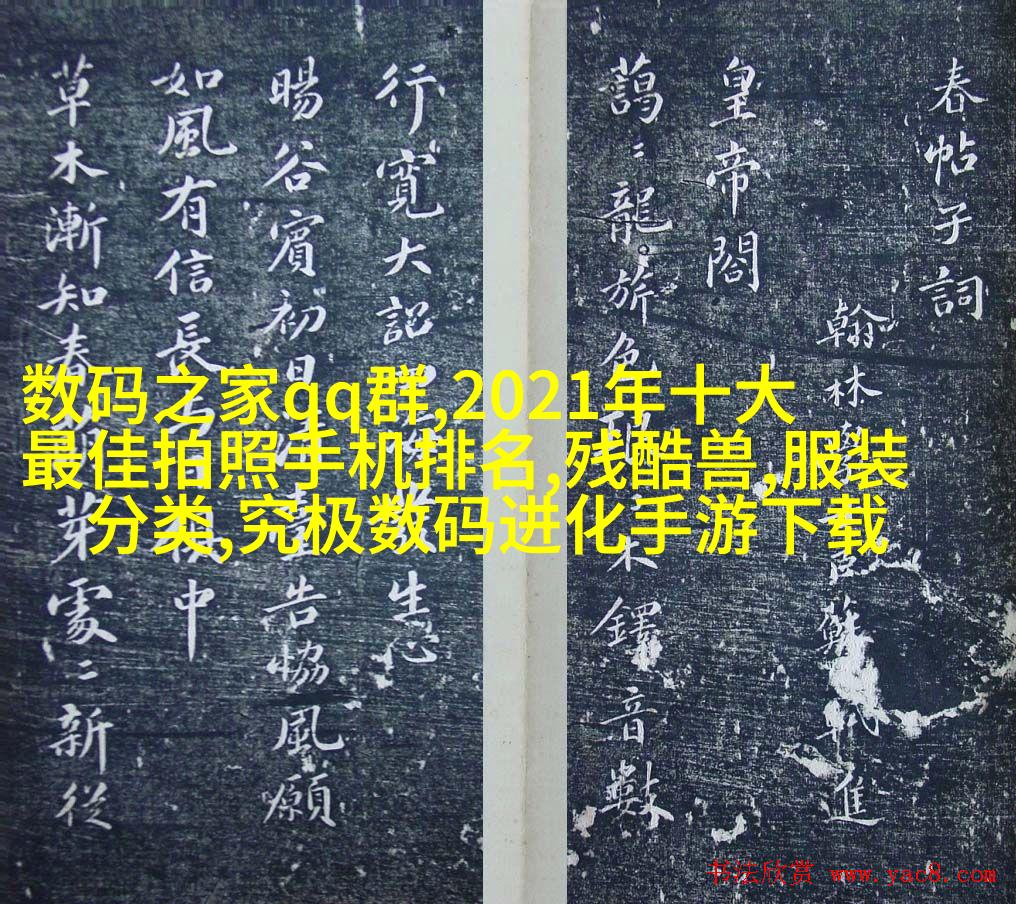 春帖子詞
翰林臣蘇軾進
皇帝閤
藹〻龍旂色木鐸音數
行寬大詔生心
暘谷賓初日臺告協風願
如風有信長中
草木漸知春芽處〻新從
数码之家qq群,2021年十大
最佳拍照手机排名,残酷兽,服装
分类,究极数码进化手游下载
书法欣赏 www.yac8.com